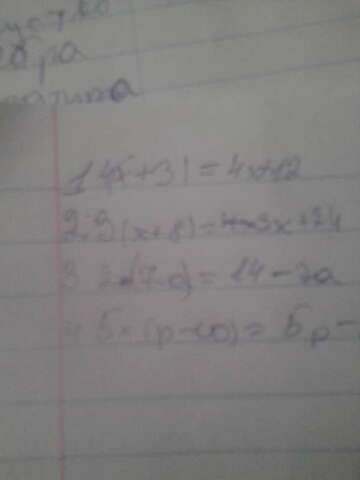 бра
1 4(x+3)=4x+12
2. 3(x+8)=3x+24
3 2(7-a)=14-2a
4 5×(p-10)=5p-